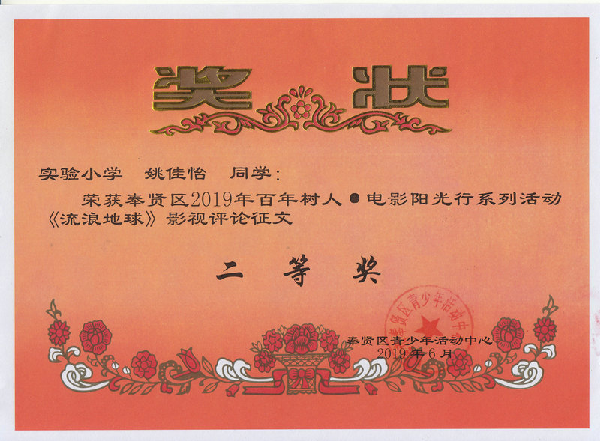 奖状
实验小学 姚佳怡 同学:
荣获奉贤区2019年百年树人●电影阳光行系列活动
《流浪地球》影视评论征文
二等奖
奉贤区青少年活动中心
2019年6月